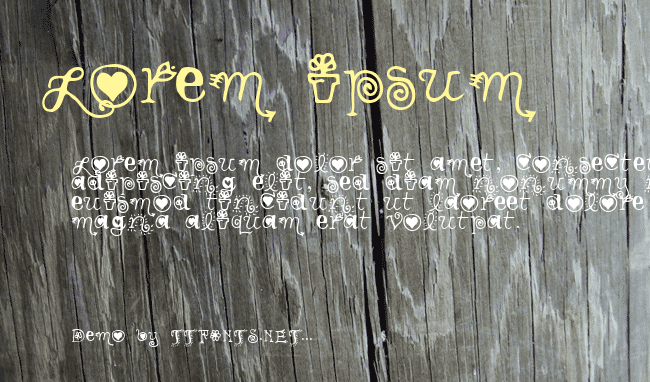 Lorem ipsum
Lorem ipsum dolor sit amet, consectetu
adipiscing elit, sed diam nonummy n
euismod tincidunt ut laoreet dolore
magna aliquam erat volutpat.
Demo by TTFONTS.NET...